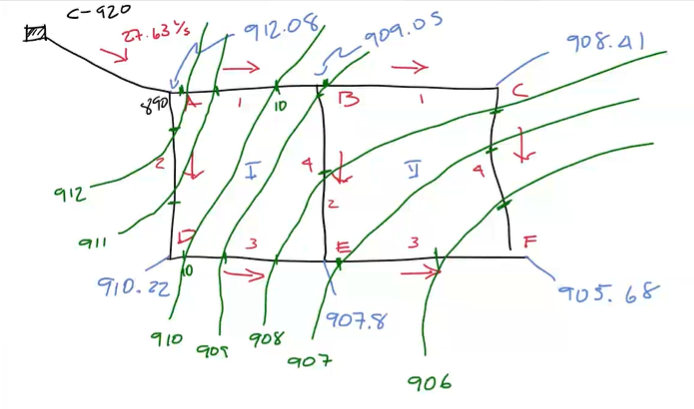 C-920
27.63 l/s
912.08
909.05
908.41
890
A
1
10
B
1
C
2
I
4
II
4
2
912
911
D
10
3
E
3
F
910.22
907.8
905.68
910
909
908
907
906